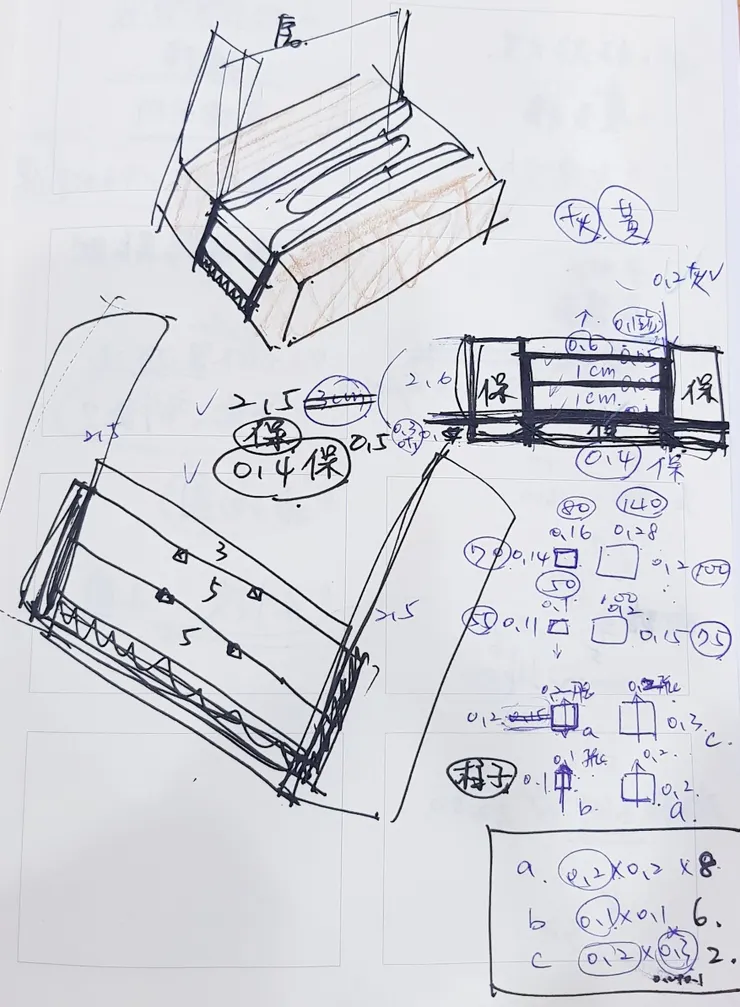 灰 黃
0.2灰V
0.6
0.05
2.6
保
1cm
0.05
保
1cm
V 2.5
保
V 0.4保
0.5
0.3
0.4 保
2.5
3
5
5
2.5
80 140
0.16 0.28
70 0.14 0.2 100
50 100
0.1 0.2
55 0.11 0.15 75
0.2 a 0.3 c.
0.1 0.2
柱子 0.1 b 0.2 a.
a. 0.2×0.2 ×8
b 0.1×0.1 6.
c 0.2×0.3 2.